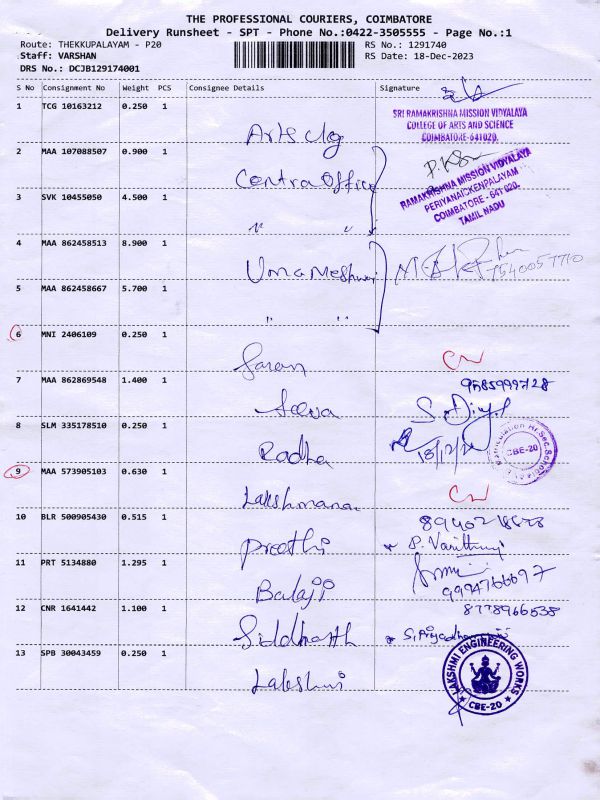 THE PROFESSIONAL COURIERS, COIMBATORE
Delivery Runsheet - SPT - Phone No.:0422-3505555 - Page No.:1
Route: THEKKUPALAYAM - P20
RS No.: 1291740
Staff: VARSHAN
RS Date: 18-Dec-2023
DRS No.: DCJB129174001
S No Consignment No Weight PCS Consignee Details Signature
1 TCG 10163212 0.250 1
Arts clg
SRI RAMAKRISHNA MISSION VIDYALAYA
COLLEGE OF ARTS AND SCIENCE
COIMBATORE-641020.
2 MAA 107088507 0.900 1
Contra Office
RAMAKRISHNA MISSION VIDYALAYA
PERIYANAICKENPALAYAM
COIMBATORE - 641 020.
TAMIL NADU
3 SVK 10455050 4.500 1
" "
4 MAA 862458513 8.900 1
Uma Meshwari
7540057710
5 MAA 862458667 5.700 1
" "
6 MNI 2406109 0.250 1
Saran
CN
7 MAA 862869548 1.400 1
9585999728
Selva
8 SLM 335178510 0.250 1
Radha
CBE-20
9 MAA 573905103 0.630 1
Lakshmanan
CN
10 BLR 500905430 0.515 1
Preethi
11 PRT 5134880 1.295 1
Balaji
9994766697
12 CNR 1641442 1.100 1
8778966538
Siddharth
13 SPB 30043459 0.250 1
Lakshmi
LAKSHMI ENGINEERING WORKS
CBE-20